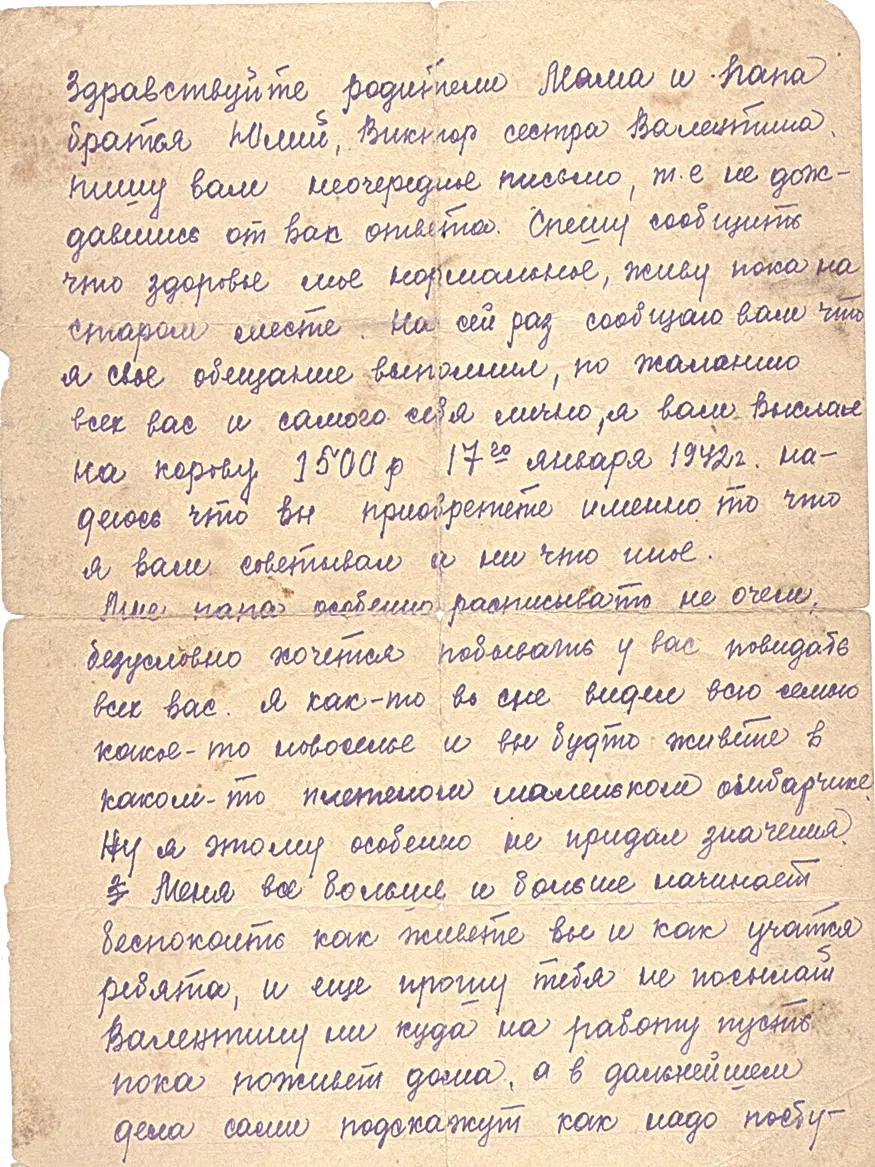 Здравствуйте родители Мама и папа
братья Юлий, Виктор сестра Валентина.
пишу вам неочередное письмо, т.е не дож-
давшись от вас ответа. Спешу сообщить
что здоровье мое нормальное, живу пока на
старом месте. На сей раз сообщаю вам что
я свое обещание выполнил, по жаланию
всех вас и самого себя лично, я вам выслал
на корову 1500 р 17го января 1942г. на-
деюсь что вы приобретете именно то что
я вам советывал а ни что иное.
Мне папа особенно расписывать не очем,
безусловно хочется побывать у вас повидать
всех вас. Я как-то во сне видел всю семью
какое-то новоселье и вы будто живете в
каком-то плетеном маленьком омбарчике.
Ну я этому особенно не придал значения.
Меня все больше и больше начинает
беспокоить как живете вы и как учатся
ребята, и еще прошу тебя не посылай
Валентину ни куда на работу пусть
пока поживет дома, а в дальнейшем
дела сами подскажут как надо посту-